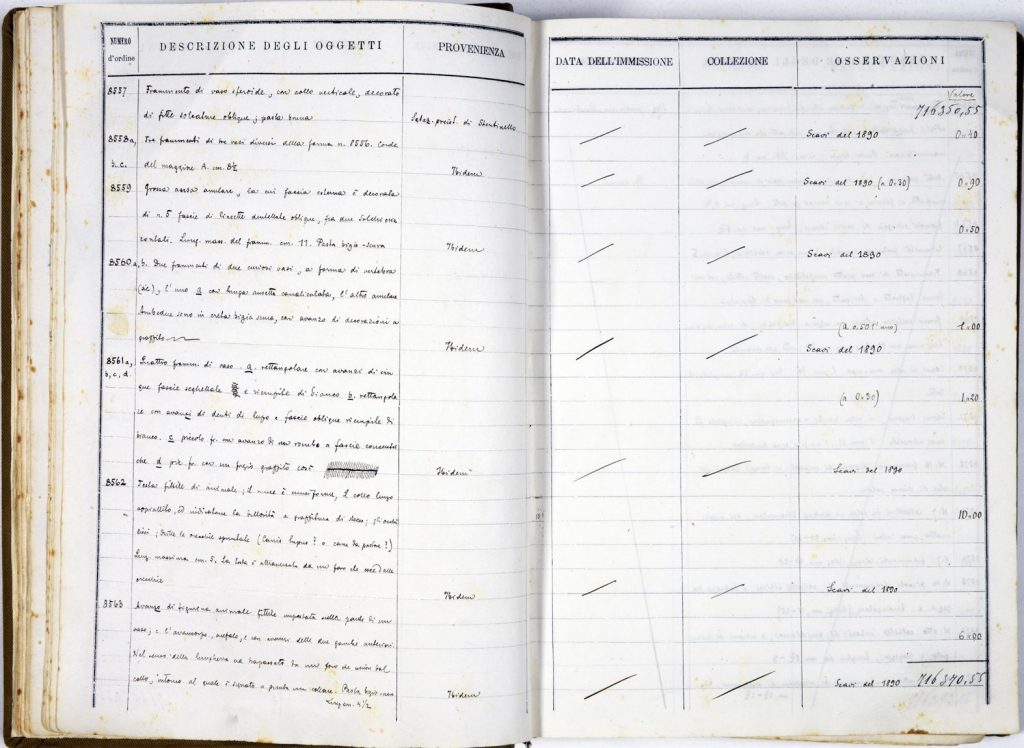 NUMERO
d'ordine
DESCRIZIONE DEGLI OGGETTI
PROVENIENZA
DATA DELL'IMMISSIONE
COLLEZIONE
OSSERVAZIONI
Valore
716350,55
8557
Frammento di vaso sferoide, con collo verticale, decorato
di fitte solcature oblique; pasta bruna
Staz. preist. di Stentinello
Scavi del 1890
0.40
8558a,
b. c.
Tre frammenti di tre vasi diversi della forma n. 8556. Corde
del maggiore A. cm. 8½
Ibidem
Scavi del 1890 (a 0.30)
0.90
8559
Grossa ansa anulare, la cui fascia esterna è decorata
di n. 5 fascie di linette dentellate oblique, fra due solchi oriz
zontali. Lung. mass. del framm. cm. 11. Pasta bigio-scura
Ibidem
0.50
Scavi del 1890
8560 a,
b. Due frammenti di due curiosi vasi, a forma di vertebra
(sic), l'uno a con lunga ansetta canaliculata, l'altro anulare
Ambedue sono in creta bigia scura, con avanzo di decorazioni a
graffito
Ibidem
(a 0.50 l'uno)
1.00
Scavi del 1890
8561 a,
b, c, d.
Quattro framm. di vaso. a rettangolare con avanzi di cin
que fascie seghettate e riempile di bianco b. rettangola
re con avanzi di denti di lupo e fascie oblique riempile di
bianco. c piccolo fr. con avanzo di un rombo a fascie concentri
che d picc. fr. con un fregio graffito così
Ibidem
(a 0.30)
1.20
Scavi del 1890
8562
Testa fittile di animale; il muso è cuneiforme, il collo lungo
appiattito, ed indicatane la villosità a graffitura di stecco; gli occhi
(Canis lupus? o cane da pastore?)
Lung. massima cm. 5. La testa è attraversata da un foro che esce dalle
orecchie
Ibidem
10.00
Scavi del 1890
8563
Avanzo di figurina animale fittile impostata nella parte di un
vaso; è l'avancorpo, acefalo, e con avanzi delle due gambe anteriori.
Nel senso della lunghezza è trapassato da un foro che usciva dal
collo, intorno al quale è segnato a punta un collare. Pasta bigio-nera
Lung. cm. 4½
Ibidem
6.00
Scavi del 1890
716370,55